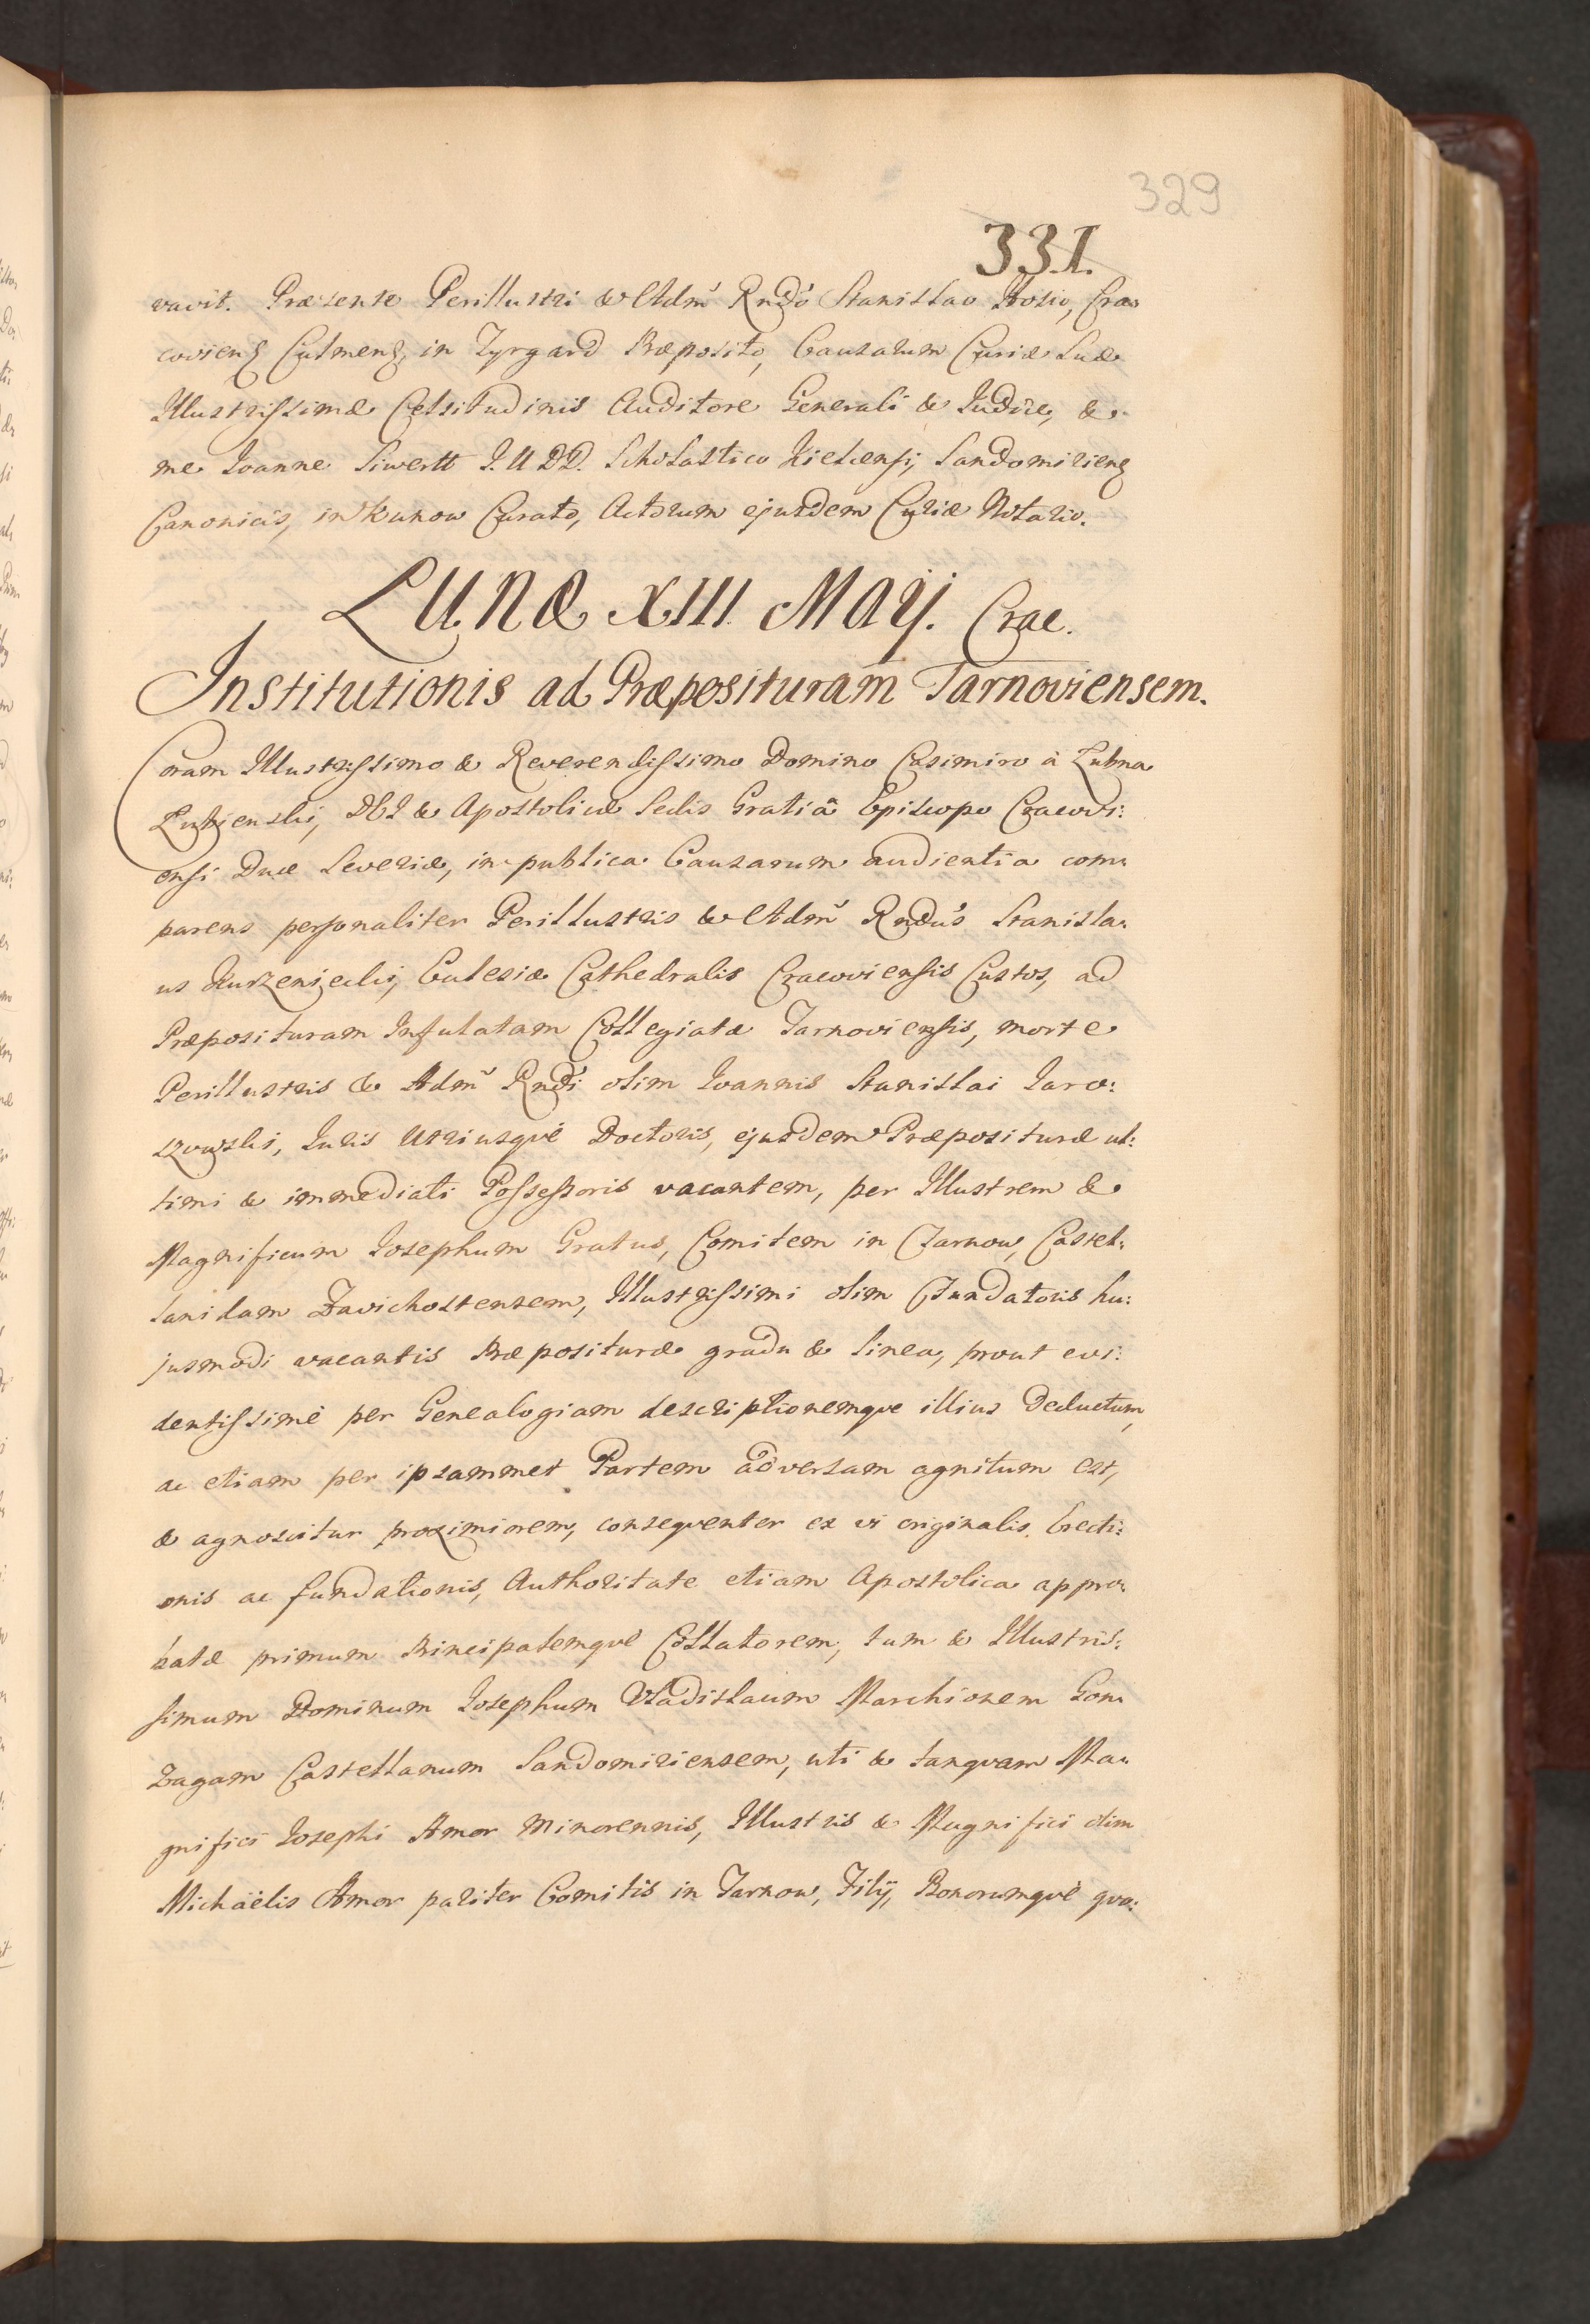 329
331.
vavit. Præsente Perillustri & Adm̃ Rndõ Stanislao Hosio, Cra
coviens Culmens, in Zyrgard Præposito, Causarum Curiæ Suæ
Illustrissimæ Celsitudinis Auditore Generali & Judice, &
me Ioanne Siwertt J. U DD. Scholastico Kielcensi, Sandomiriens
Canonicis, in Kunow Curato, Actorum ejusdem Curiæ Notario.
LUNÆ XIII MAij. Crac.
Institutionis ad Præposituram Tarnoviensem.
Coram Illustrissimo & Reverendissimo Domino Casimiro à Lubna
Lubienski, DEI & Apostolicæ Sedis Gratiâ Episcopo Cracovi:
ensi Duce Severiæ, in publica Causarum audientia com
parens personaliter Perillustris & Adm̃ Rndus Stanisla
us Kurzeniecki, Ecclesiæ Cathedralis Cracoviensis Custos, ad
Præposituram Infulatam Collegiatæ Tarnoviensis, morte
Perillustris & Adm̃ Rndi olim Ioannis Stanislai Iaro:
szowski, Iuris Utriusqué Doctoris, ejusdem Præposituræ ul:
timi & immediati Possessoris vacantem, per Illustrem &
Magnificum Iosephum Gratus, Comitem in Tarnow, Castel:
lanidam Zavichostensem, Illustrissimi olim Fundatoris hu:
jusmodi vacantis Præposituræ gradu & linea, prout evi:
dentissimè per Genealogiam descriptionemque illius Deductum,
ac etiam per ipsammet Partem adversam agnitum est,
& agnoscitur proximiorem, consequenter ex vi originalis Erecti:
onis ac fundationis, Authoritate etiam Apostolica appro
batæ primum Principalemqué Collatorem, tum & Illustris:
simum Dominum Iosephum Vladislaum Marchionem Gon
zagam Castellanum Sandomiriensem, uti & tanquam Ma
gnifici Iosephi Amor Minorennis, Illustris & Magnifici olim
Michaëlis Amor pariter Comitis in Tarnow, Filij, Bonorumqué qvo: